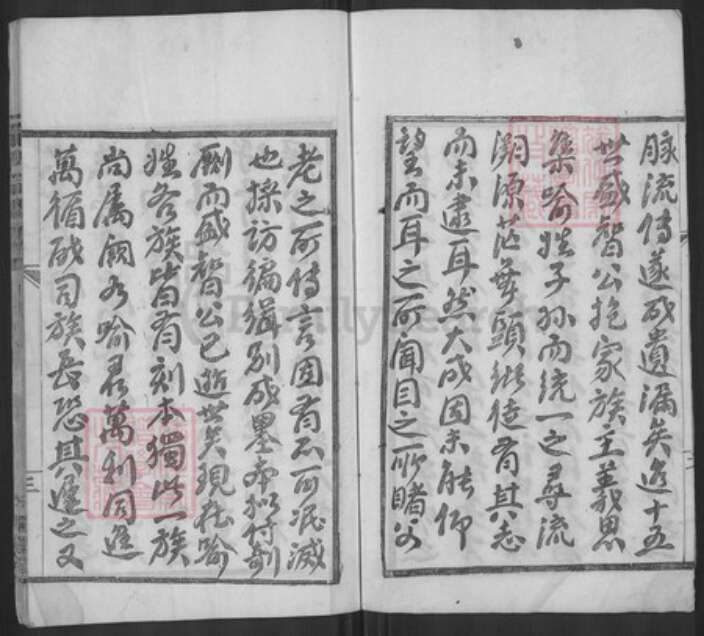 脉流傳遂成遺漏矣迨十五
世盛智公抱家族主義思
集喻姓子孫而統一之尋流
溯源茫無頭緒徒有其志
而未逮耳然大成固未能仰
望而耳之所聞目之所睹父
老之所傳言固有不可泯滅
也採訪編緝別成墨本擬付剞
劂而盛智公已逝世矣現在喻
姓各族皆有刻本獨此一族
尚属闕如喻君萬利同進
萬循成司族長恐其遲之又
三
FamilySearch